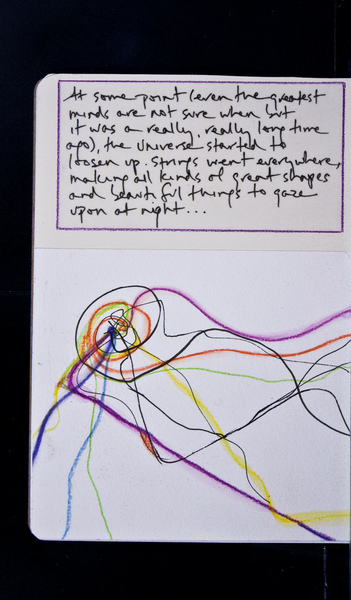 At some point (even the greatest
minds are not sure when but
it was a really, really long time
ago), the universe started to
loosen up. Strings went everywhere,
making all kinds of great shapes
and beautiful things to gaze
upon at night...